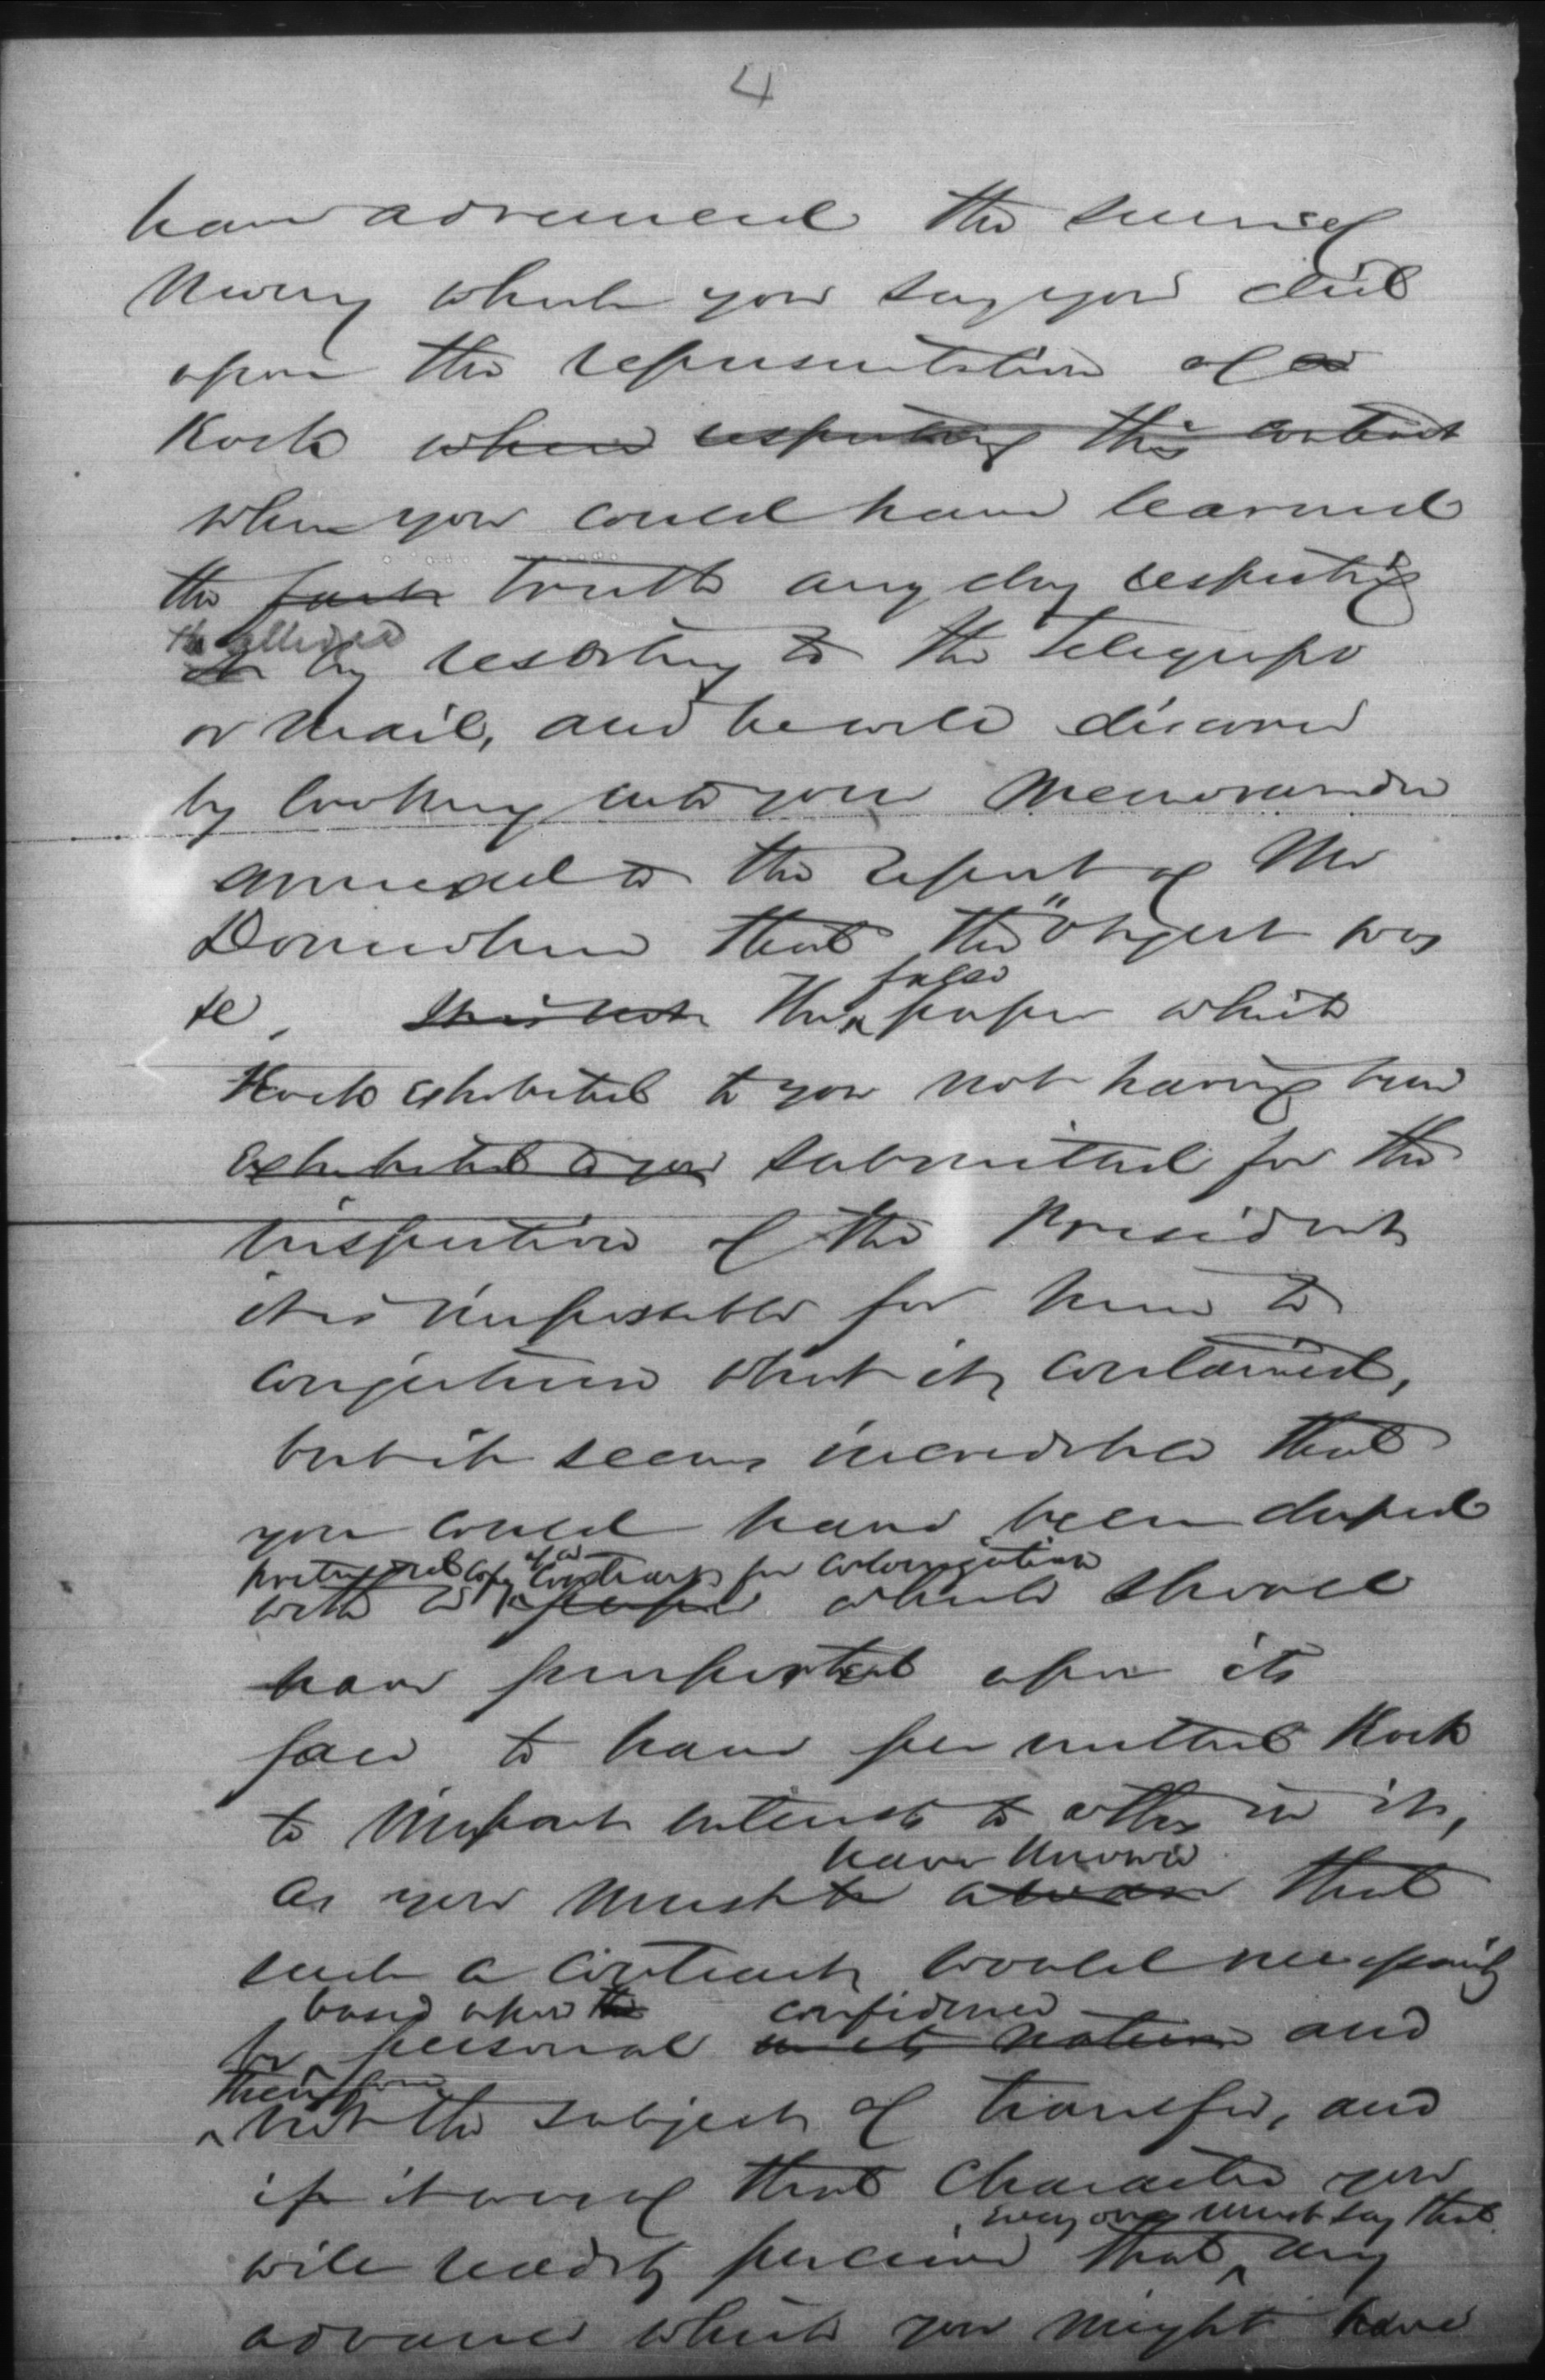 4
have advanced the sums of
money which you say you did
upon the representation of a
Kock when respecting this contract
when you could have learned
the fact truth any day respecting
the alleged
it by resorting to the telegraph
or mail, and he will discover
by looking into your memoranda
annexed to the report of Mr
Donnohue that the "object was
false
this note The paper which
Kock exhibited to you not having been
exhibited to you submitted for the
inspection of the President
it is impossible for him to
conjecture what it contained,
but it seems incredible that
you could have been duped
pretended copy of a contract for colonization
with a paper which should
have purported upon its
face to have permitted Kock
to impart interests to others in it,
have known
as you must be aware that
such a contract would necessarily
based upon the confidence
be personal in its nature and
therefore
not the subject of transfer, and
if it were of that character you
every one must say that
will readily perceive that any
advance which you might have